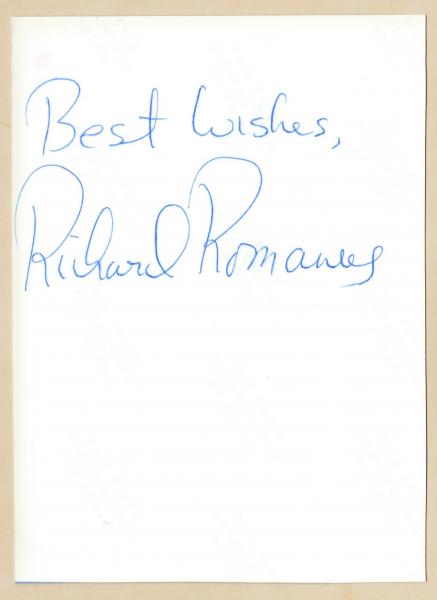 Best Wishes,
Richard Romanus